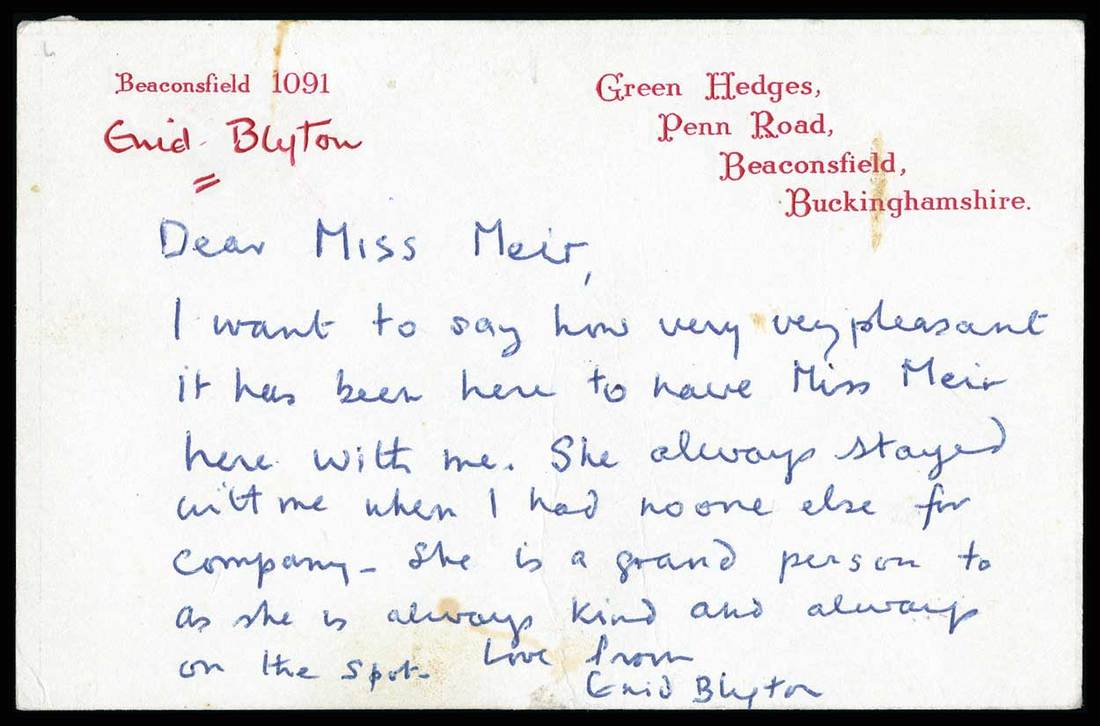 Beaconsfield 1091
Enid Blyton
Green Hedges,
Penn Road,
Beaconsfield,
Buckinghamshire.
Dear Miss Meir,
I want to say how very very pleasant
it has been here to have Miss Meir
here with me. She always stayed
with me when I had noone else for
company - She is a grand person to
as she is always kind and always
on the spot.
Love from
Enid Blyton